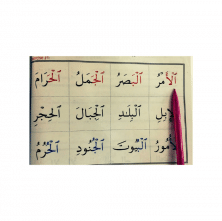 اَلْأَمْرُ اَلْبَصَرُ اَلْجَمَلُ اَلْحَرَامُ
اَلْبَلَدِ اَلْجِبَالَ اَلْحِجْرِ
اَلْبُيُوتَ اَلْجُنُودِ اَلْحُرُمُ